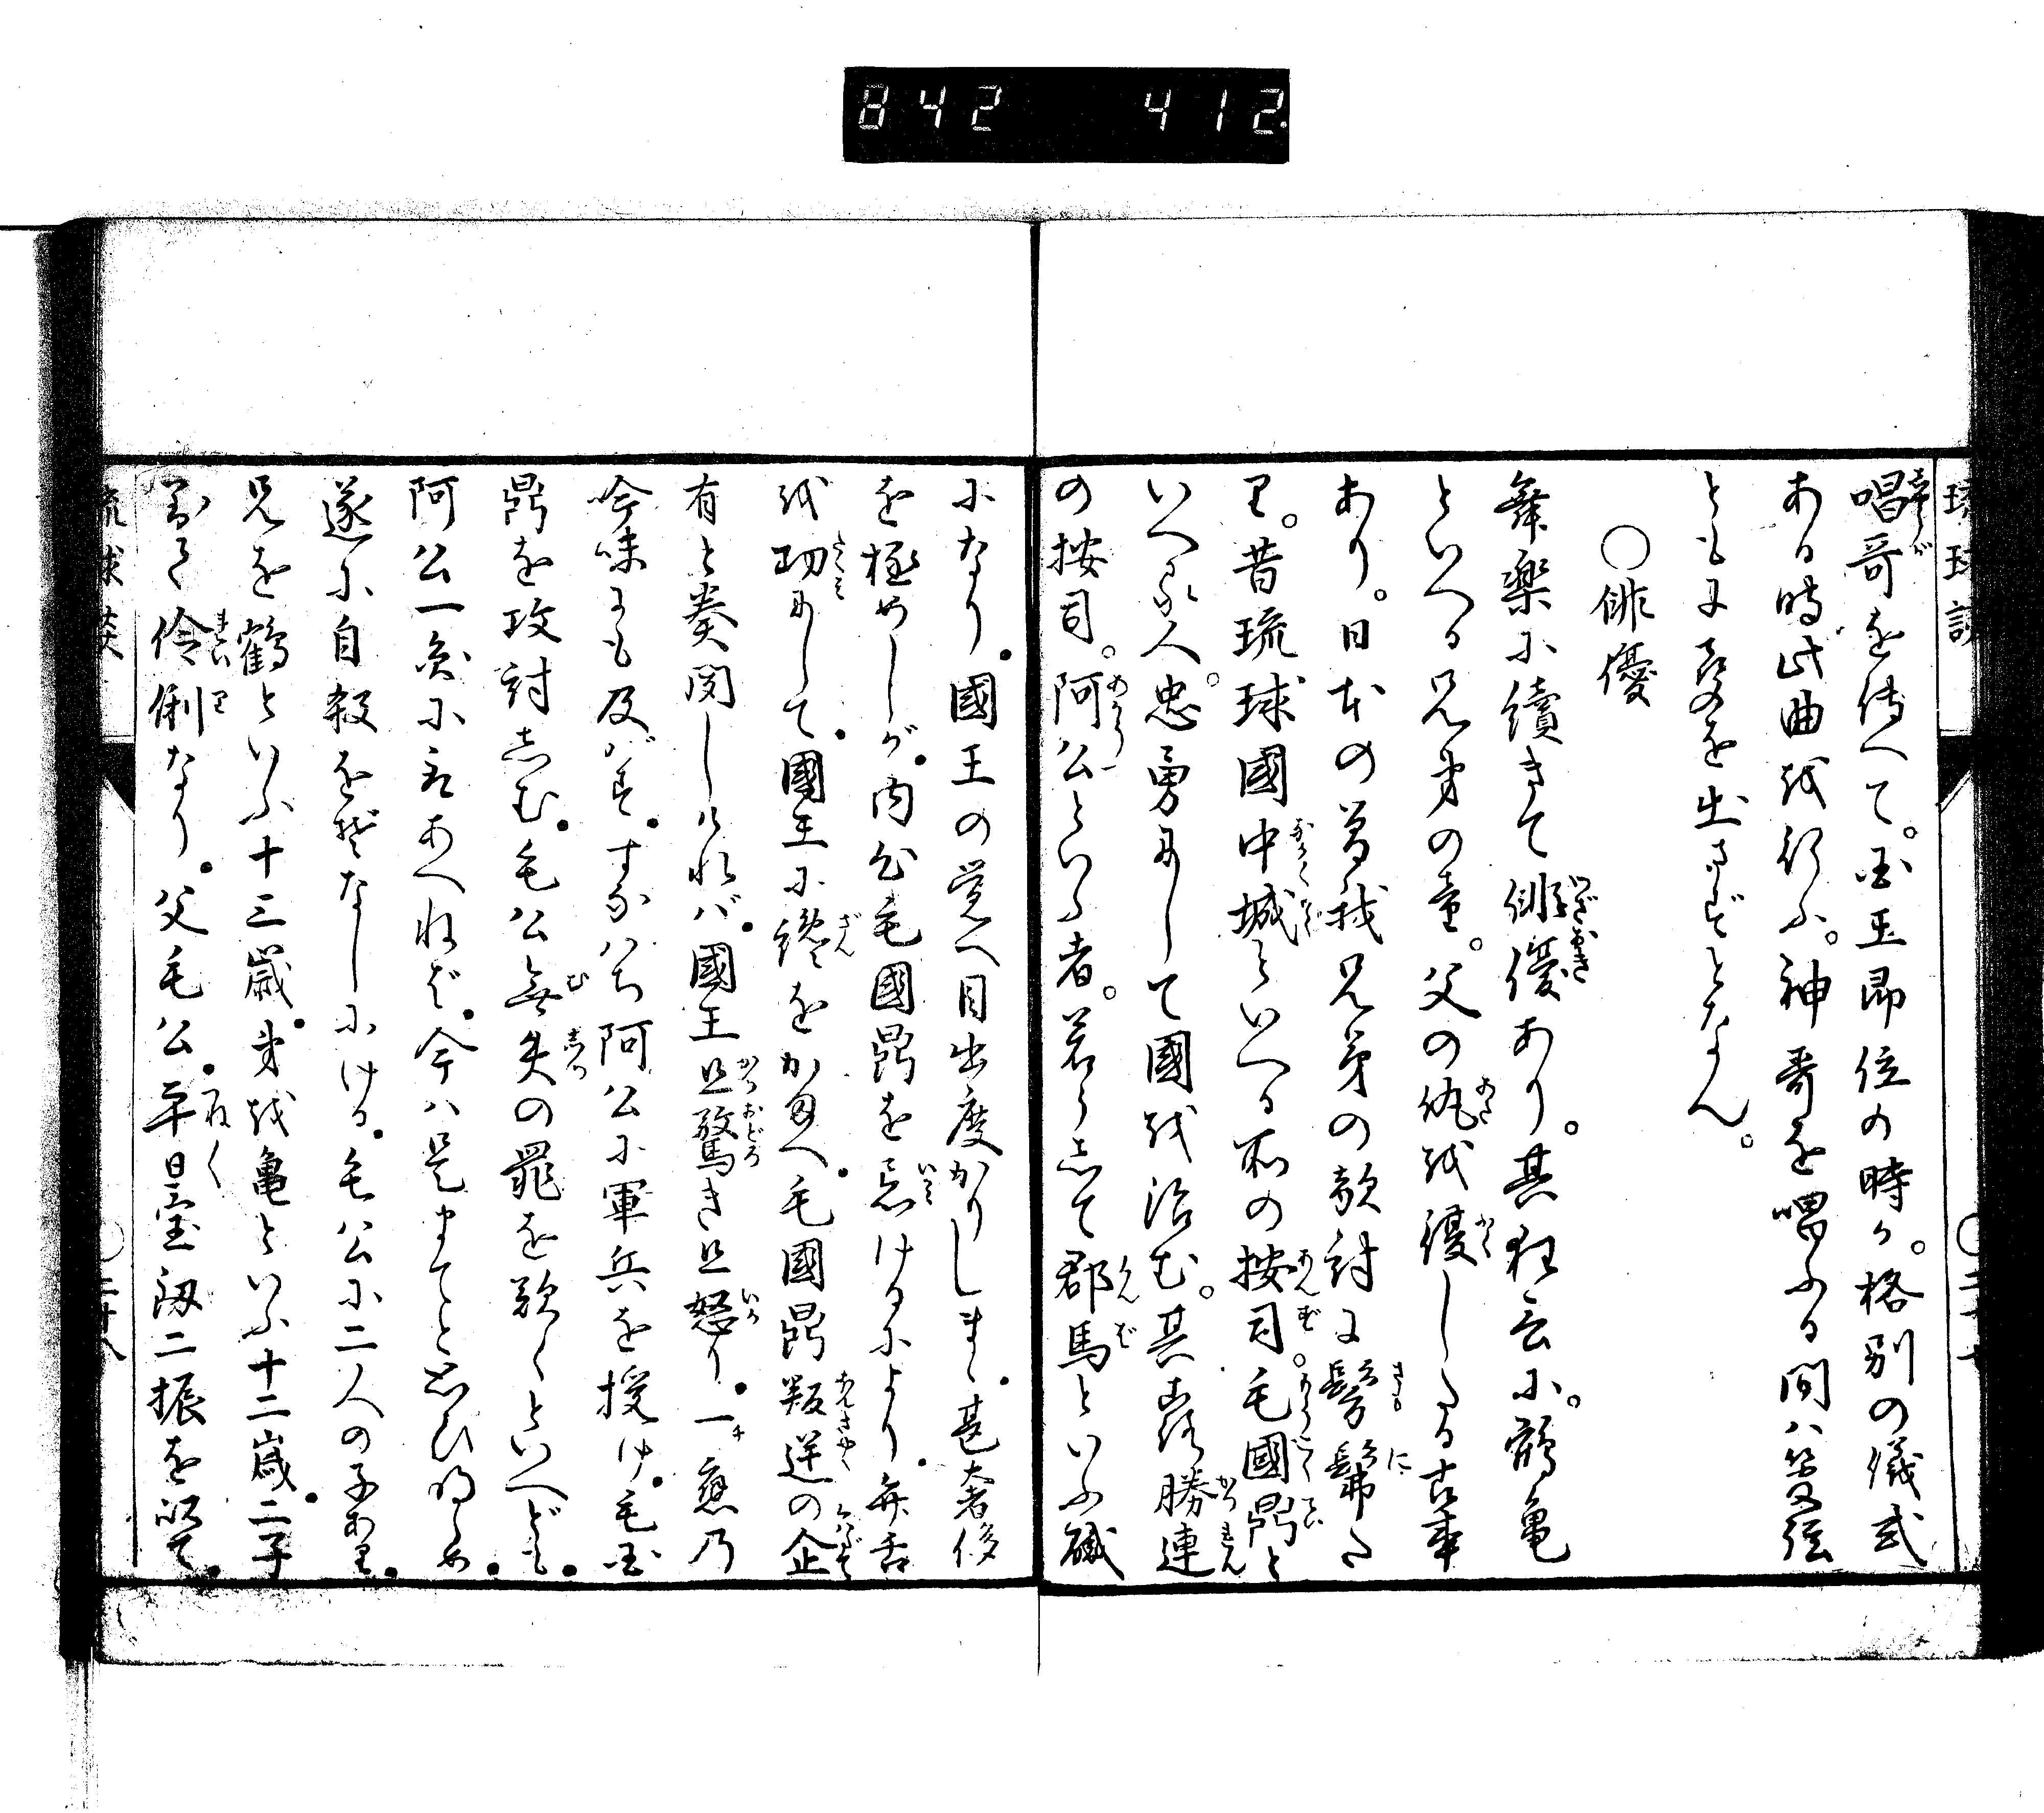 842 412
唱哥を傳へて。国王即位の時か。格別の儀式
ある時此曲を行ふ。神哥を唱ふる間ハ管絃
ともに聲を出さずとなん。
○俳優
舞樂に續きて俳優あり。其狂言に。鶴亀
といへる兄弟の童。父の仇を復したる古事
あり。日本の曽我兄弟の敵討に髣髴た
り。昔琉球國中城といへる所の按司。毛國鼎と
いへる人。忠勇にして國を治む。其頃勝連
の按司。阿公といふ者。若うして郡馬といふ職
になり。國王の覚へ目出度かりしまゝ。甚奢侈
を極めしが。内心毛國鼎を忌けるにより。弁舌
を功にして。國王に纔をかまへ。毛國鼎叛逆の企
有と奏聞しければ。國王且驚き且怒り。一應乃
吟味にも及ばず。すなハち阿公に軍兵を授け。毛国
鼎を攻討しむ。毛公無失の罪を歎くといへども。
阿公一向に言あへねば。今ハ是までと思ひ明らめ。
遂に自殺をぞなしにける。毛公に二人の子あり。
兄を鶴といふ十三歳。弟を亀といふ十二歳。二子
ともに伶俐なり。父毛公。平日寳刀二振を以て。